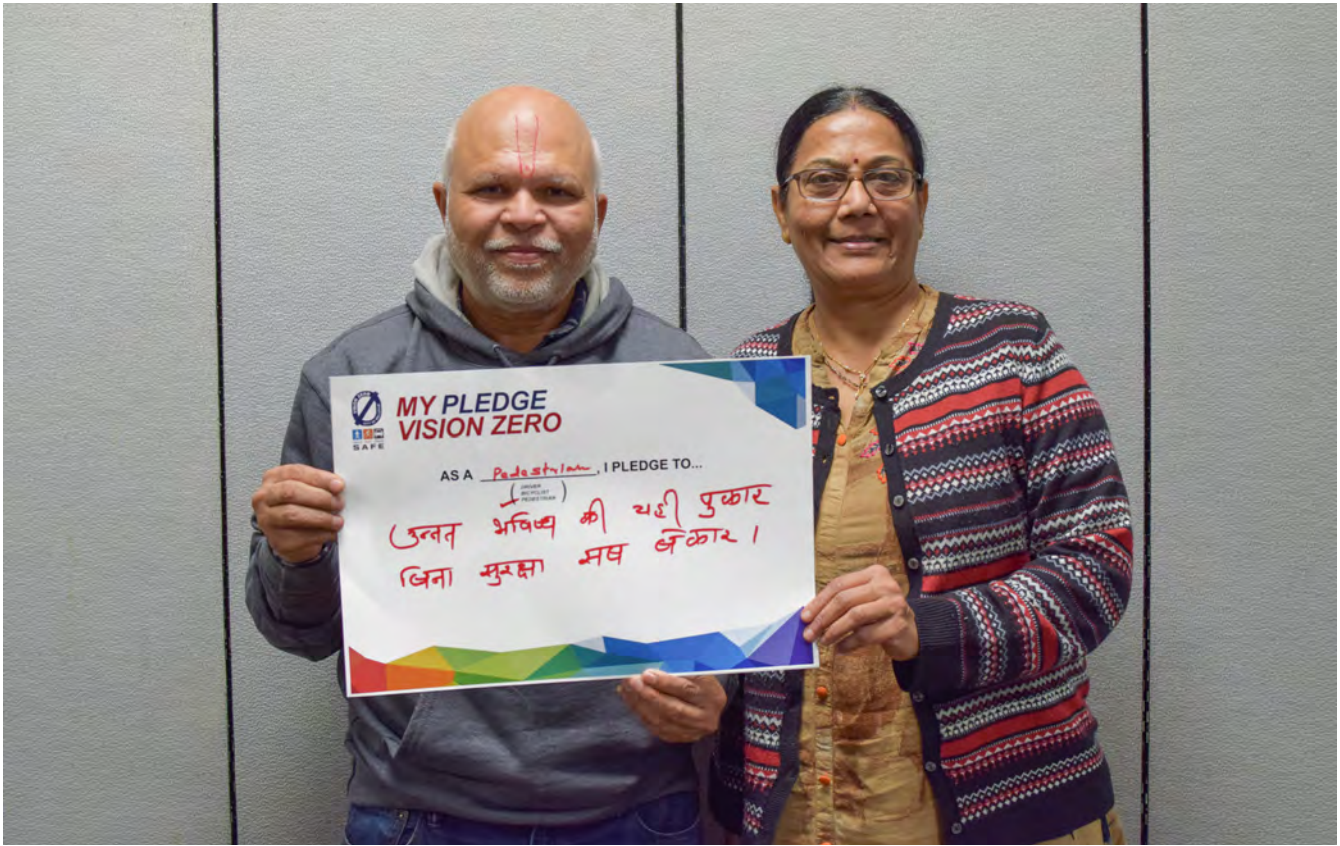 MY PLEDGE
VISION ZERO
SAFE
AS A Pedestrian, I PLEDGE TO...
( DRIVER
BICYCLIST
PEDESTRIAN )
उन्नत भविष्य की यही पुकार
बिना सुरक्षा सब बेकार।